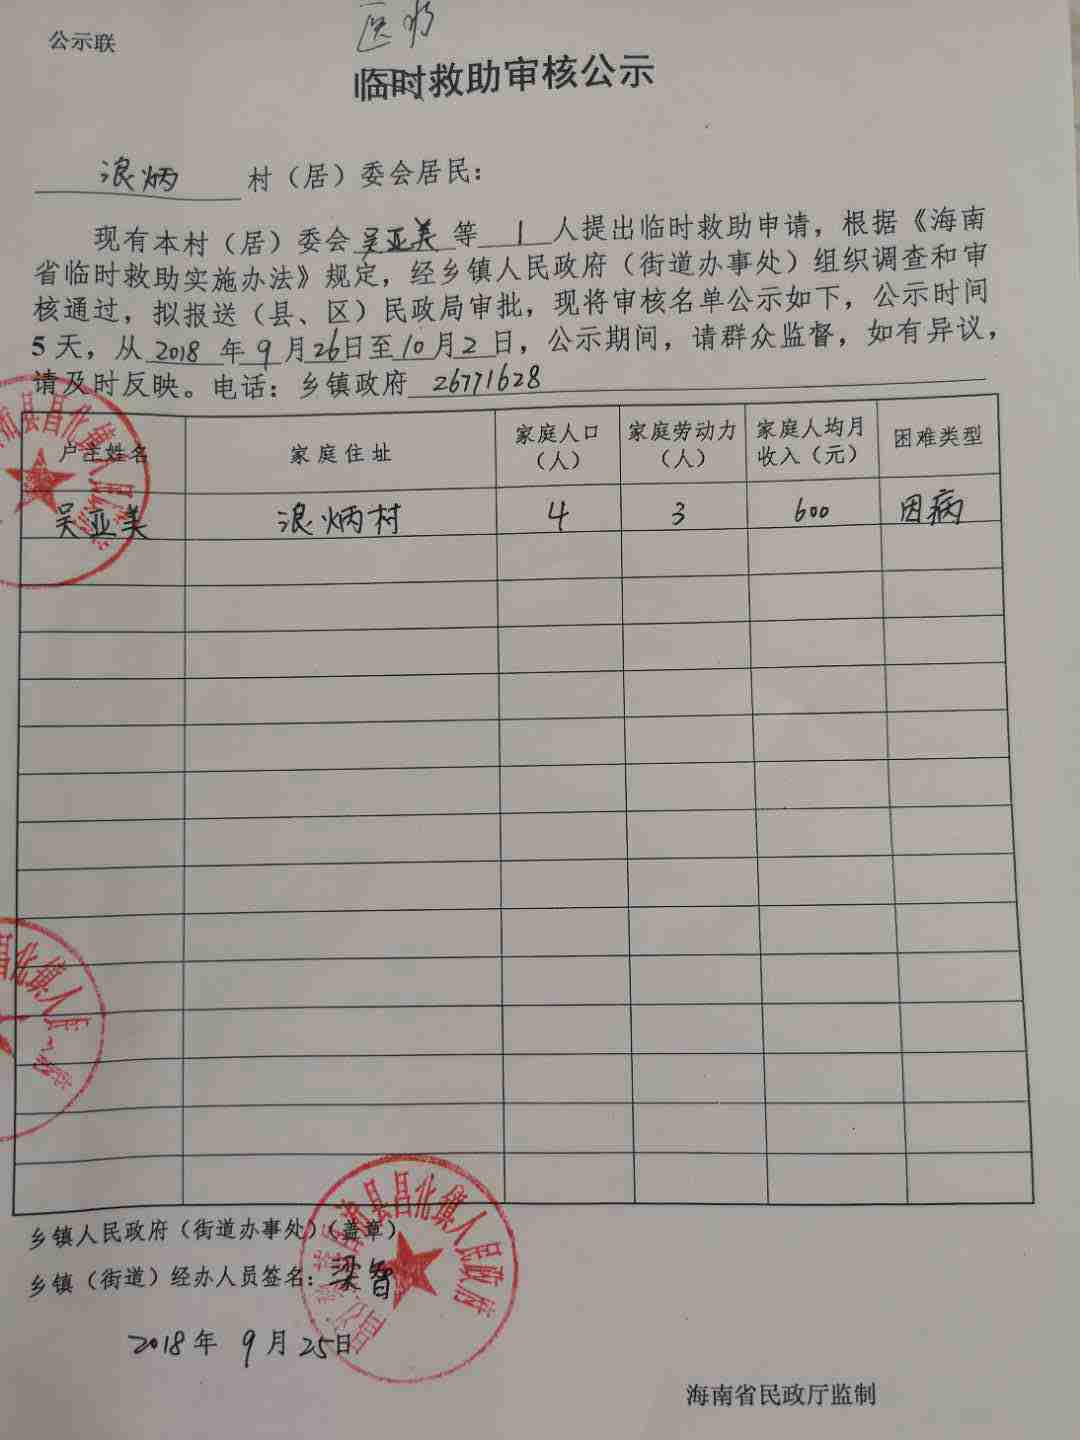 公示联
医疗
临时救助审核公示
浪炳 村（居）委会居民：
现有本村（居）委会吴亚美等 1 人提出临时救助申请，根据《海南
省临时救助实施办法》规定，经乡镇人民政府（街道办事处）组织调查和审
核通过，拟报送（县、区）民政局审批，现将审核名单公示如下，公示时间
5 天，从 2018 年 9 月 26 日至 10 月 2 日，公示期间，请群众监督，如有异议，
请及时反映。电话：乡镇政府 26771628
户主姓名 家庭住址 家庭人口（人） 家庭劳动力（人） 家庭人均月收入（元） 困难类型
吴亚美 浪炳村 4 3 600 因病
县昌化镇人民政府
镇人民
乡镇人民政府（街道办事处）（盖章）
县昌化镇人民政府
乡镇（街道）经办人员签名：梁智
2018年 9月 25日
海南省民政厅监制